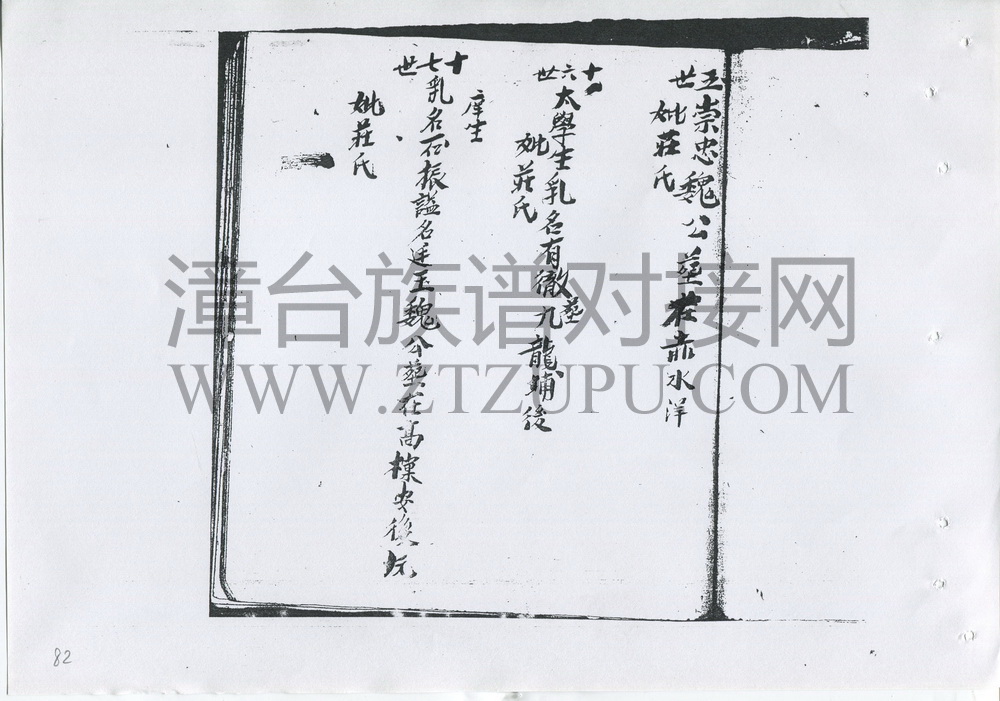 五世崇忠魏公葬在赤水洋
妣莊氏
十六世太學生乳名有徹葬九龍埔後
妣莊氏
庠生
十七世乳名石振謚名廷玉魏公葬在高樑安後坑
妣莊氏
漳台族谱对接网
WWW.ZTZUPU.COM
82